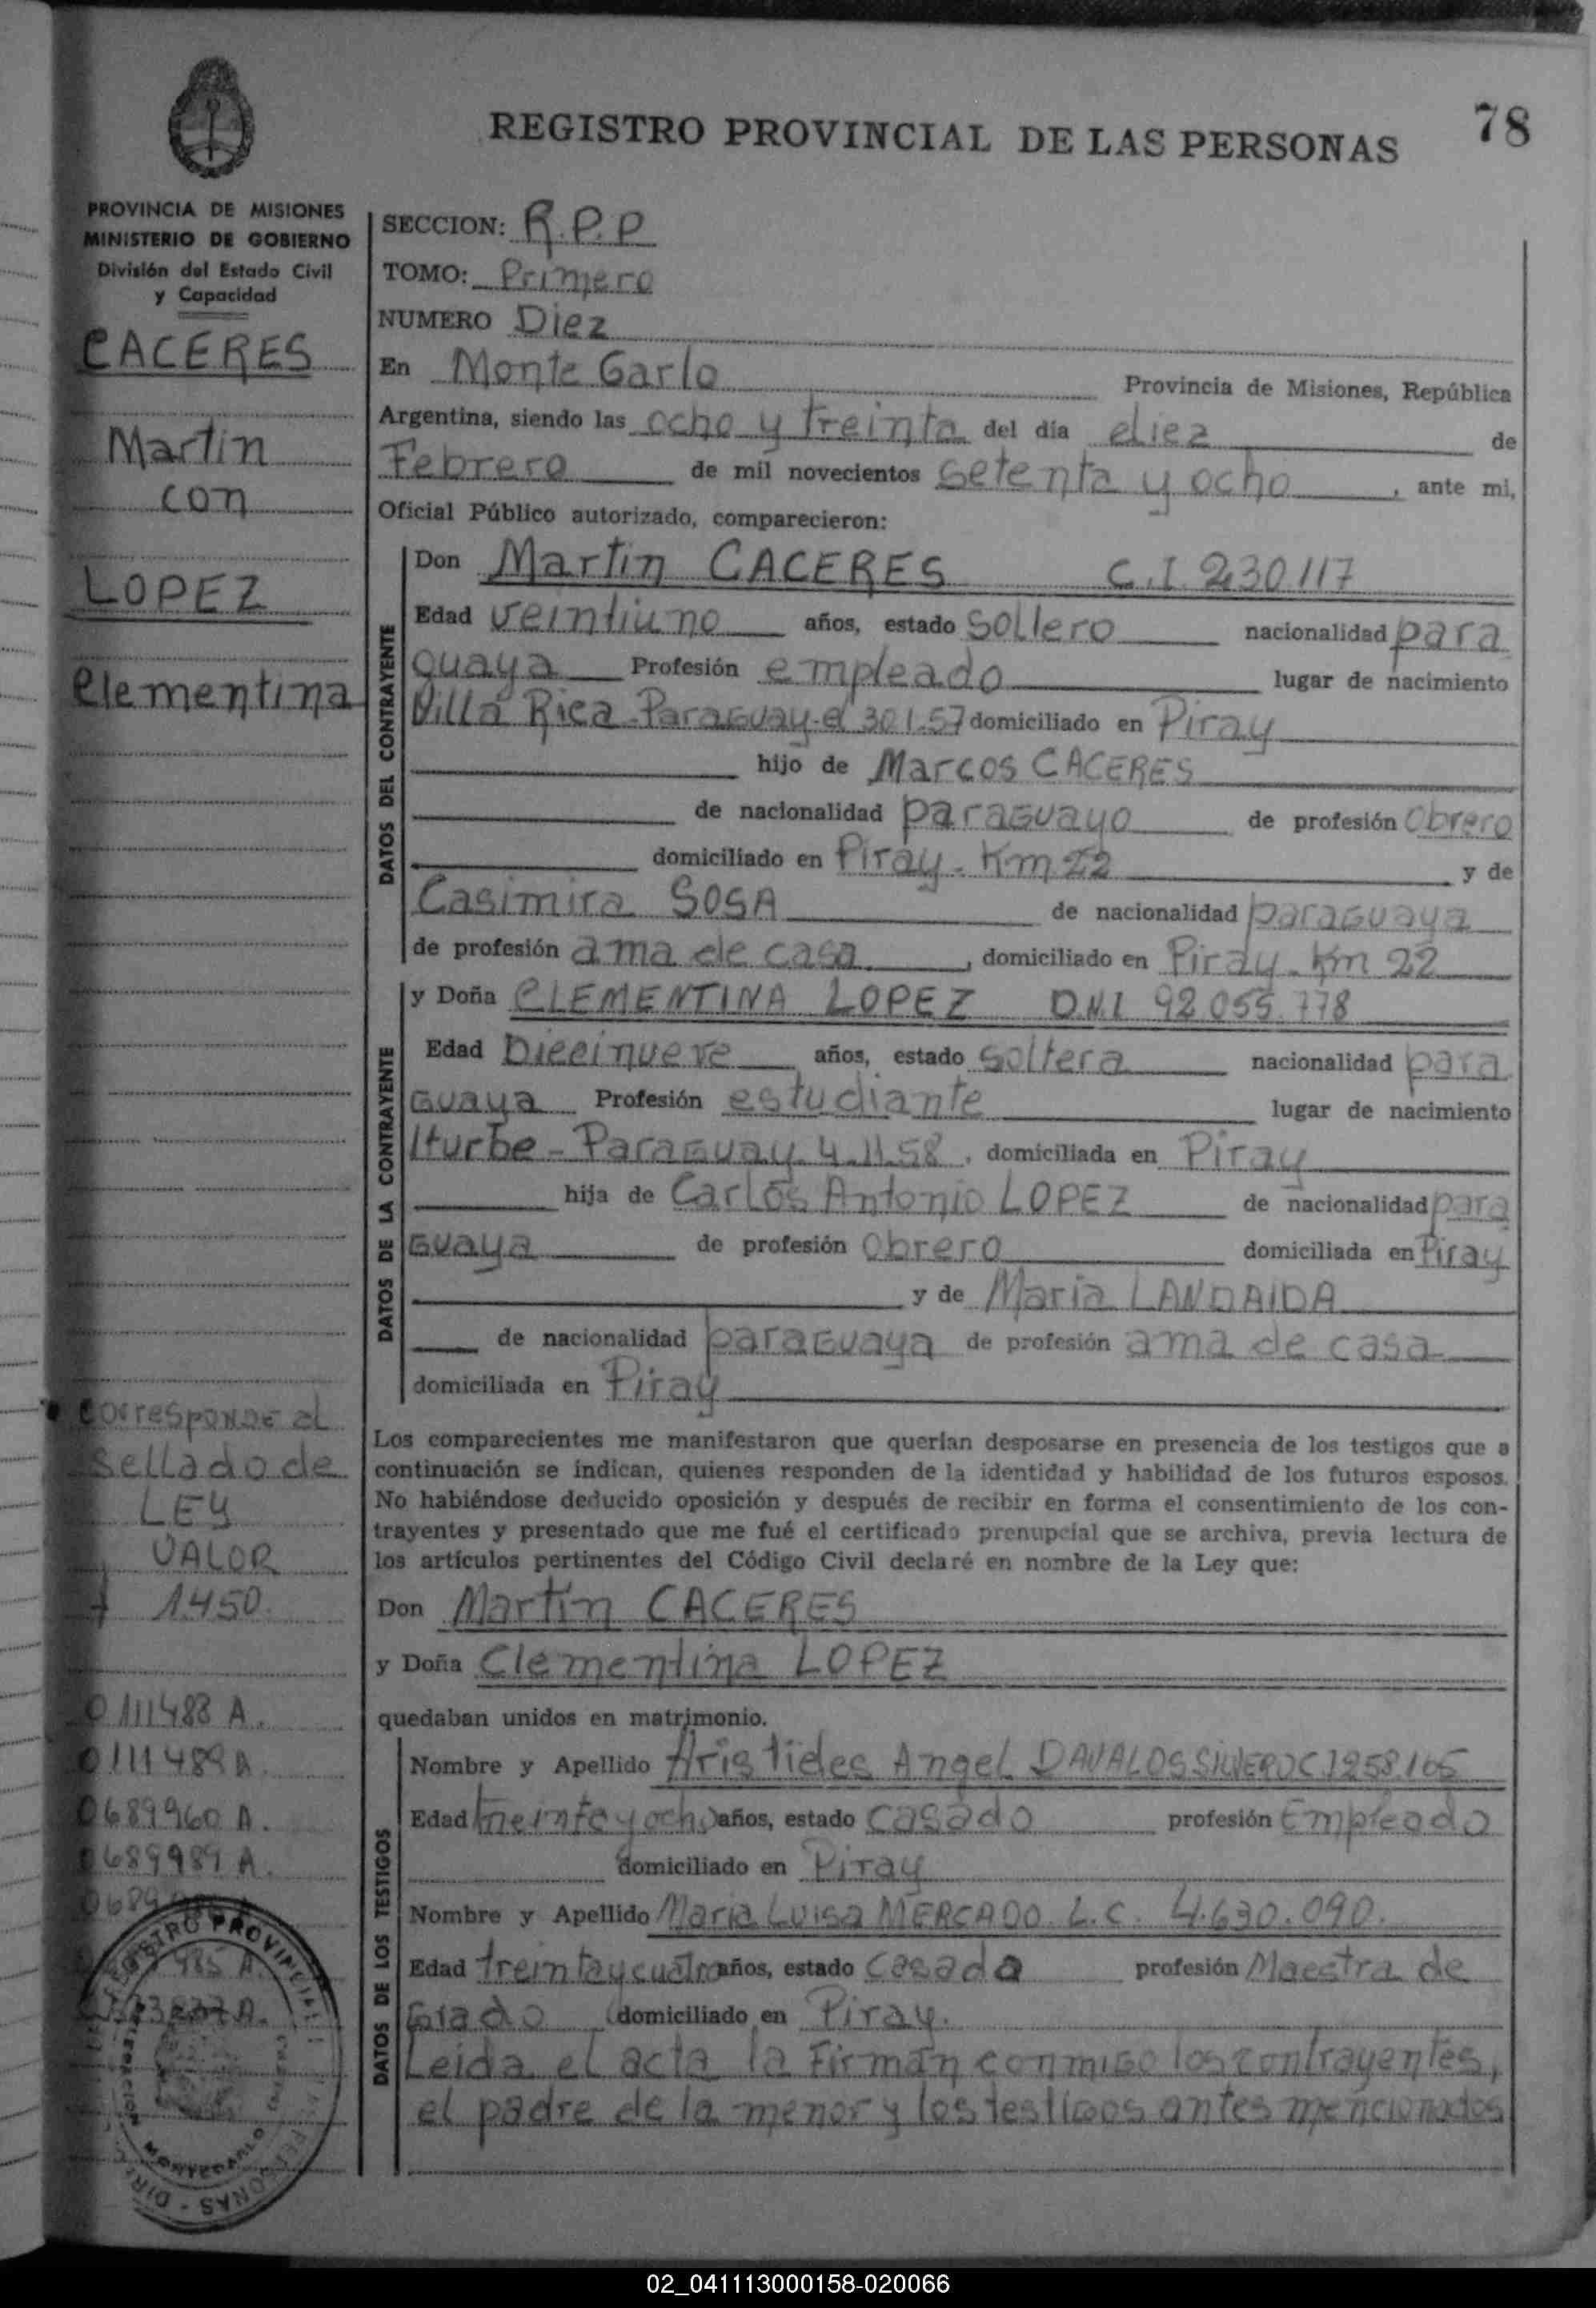 REGISTRO PROVINCIAL DE LAS PERSONAS
78
PROVINCIA DE MISIONES
MINISTERIO DE GOBIERNO
División del Estado Civil
y Capacidad
CACERES
Martin
con
LOPEZ
Clementina
Corresponde al
Sellado de
LEY
VALOR
1.450.
0111488 A.
0111489 A.
0689960 A.
0689989 A.
985 A.
REGISTRO PROVINCIAL
MONTECARLO
SECCION: R.P.P
TOMO: Primero
NUMERO Diez
En Monte Carlo Provincia de Misiones, República
Argentina, siendo las ocho y treinta del día diez de
Febrero de mil novecientos setenta y ocho, ante mi,
Oficial Público autorizado, comparecieron:
DATOS DEL CONTRAYENTE
Don Martin CACERES C.I. 230117
Edad veintiuno años, estado Soltero nacionalidad para
guaya Profesión empleado lugar de nacimiento
Villa Rica-Paraguay-el 30.1.57 domiciliado en Piray
hijo de Marcos CACERES
de nacionalidad paraguayo de profesión Obrero
domiciliado en Piray-Km 22 y de
Casimira SOSA de nacionalidad paraguaya
de profesión ama de casa, domiciliado en Piray-Km 22
DATOS DE LA CONTRAYENTE
y Doña CLEMENTINA LOPEZ D.N.I 92.055.778
Edad Diecinueve años, estado soltera nacionalidad para
guaya Profesión estudiante lugar de nacimiento
Iturbe-Paraguay 4.11.58, domiciliada en Piray
hija de Carlos Antonio LOPEZ de nacionalidad para
guaya de profesión Obrero domiciliada en Piray
y de Maria LANDAIDA
de nacionalidad paraguaya de profesión ama de casa
domiciliada en Piray
Los comparecientes me manifestaron que querían desposarse en presencia de los testigos que a
continuación se indican, quienes responden de la identidad y habilidad de los futuros esposos.
No habiéndose deducido oposición y después de recibir en forma el consentimiento de los con-
trayentes y presentado que me fué el certificado prenupcial que se archiva, previa lectura de
los artículos pertinentes del Código Civil declaré en nombre de la Ley que:
Don Martin CACERES
y Doña Clementina LOPEZ
quedaban unidos en matrimonio.
DATOS DE LOS TESTIGOS
Nombre y Apellido Aristides Angel DAVALOS SILVERO C.I 258.105
Edad treinta y ocho años, estado casado profesión Empleado
domiciliado en Piray
Nombre y Apellido Maria Luisa MERCADO L.C. 4.630.090.
Edad treinta y cuatro años, estado casada profesión Maestra de
Grado domiciliado en Piray.
Leida el acta la firman conmigo los contrayentes,
el padre de la menor y los testigos antes mencionados
02_041113000158-020066